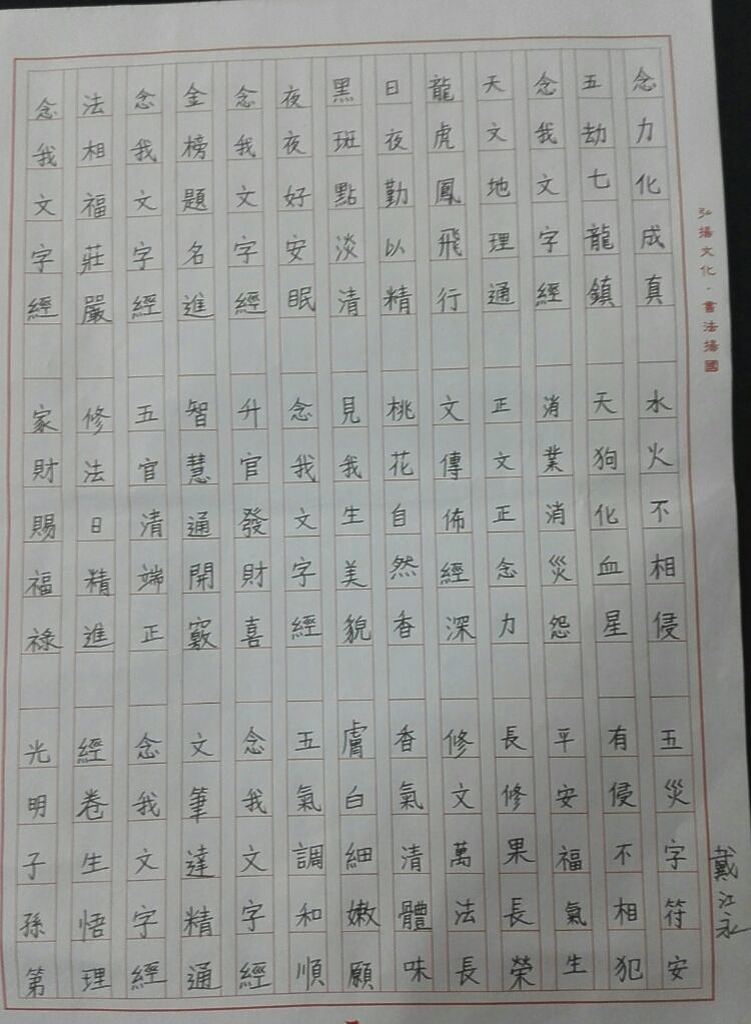 念力化成真　水火不相侵　五災字符安
五劫七龍鎮　天狗化血星　有侵不相犯
念我文字經　消業消災怨　平安福氣生
天文地理通　正文正念力　長修果長榮
龍虎鳳飛行　文傳佈經深　修文萬法長
日夜勤以精　桃花自然香　香氣清體味
黑斑點淡清　見我生美貌　膚白細嫩願
夜夜好安眠　念我文字經　五氣調和順
念我文字經　升官發財喜　念我文字經
金榜題名進　智慧通開竅　文筆達精通
念我文字經　五官清端正　念我文字經
法相福莊嚴　修法日精進　經卷生悟理
念我文字經　家財賜福祿　光明子孫第
弘揚文化·書法揚國
戴江永